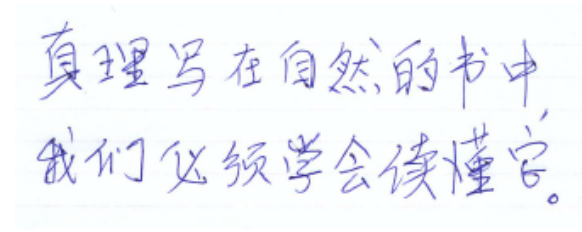 真理写在自然的书中，
我们必须学会读懂它。